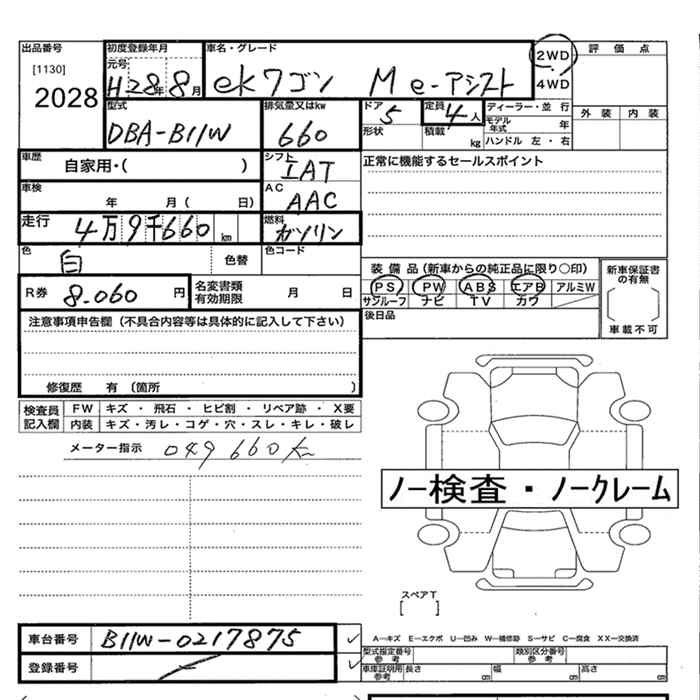 出品番号 [1130] 2028
初度登録年月 元号 H28年8月
車名・グレード ekワゴン M e-アシスト
2WD 4WD
評価点
外装 内装
型式 DBA-B11W
排気量又はkw 660
ドア 5 形状
定員 4人 積載 kg
ディーラー・並行
モデル年式 年
ハンドル 左・右
車歴 自家用・( )
シフト IAT
正常に機能するセールスポイント
車検 年 月( 日)
AC AAC
走行 4万9千660km
燃料 ガソリン
色 白 色替 色コード
R券 8.060円
名変書類有効期限 月 日
装備品(新車からの純正品に限り○印)
PS PW ABS エアB アルミW
サンルーフ ナビ TV カワ
新車保証書の有無
車載不可
後日品
注意事項申告欄(不具合内容等は具体的に記入して下さい)
修復歴 有(箇所 )
検査員記入欄
FW キズ・飛石・ヒビ割・リペア跡・X要
内装 キズ・汚レ・コゲ・穴・スレ・キレ・破レ
メーター指示 049660
ノー検査・ノークレーム
スペアT
[ ]
車台番号 B11W-0217875
登録番号
A—キズ E—エクボ U—凹み W—補修跡 S—サビ C—腐食 XX—交換済
型式指定番号 参考 類別区分番号 参考
車庫証明用 参考 長さ 幅 高さ